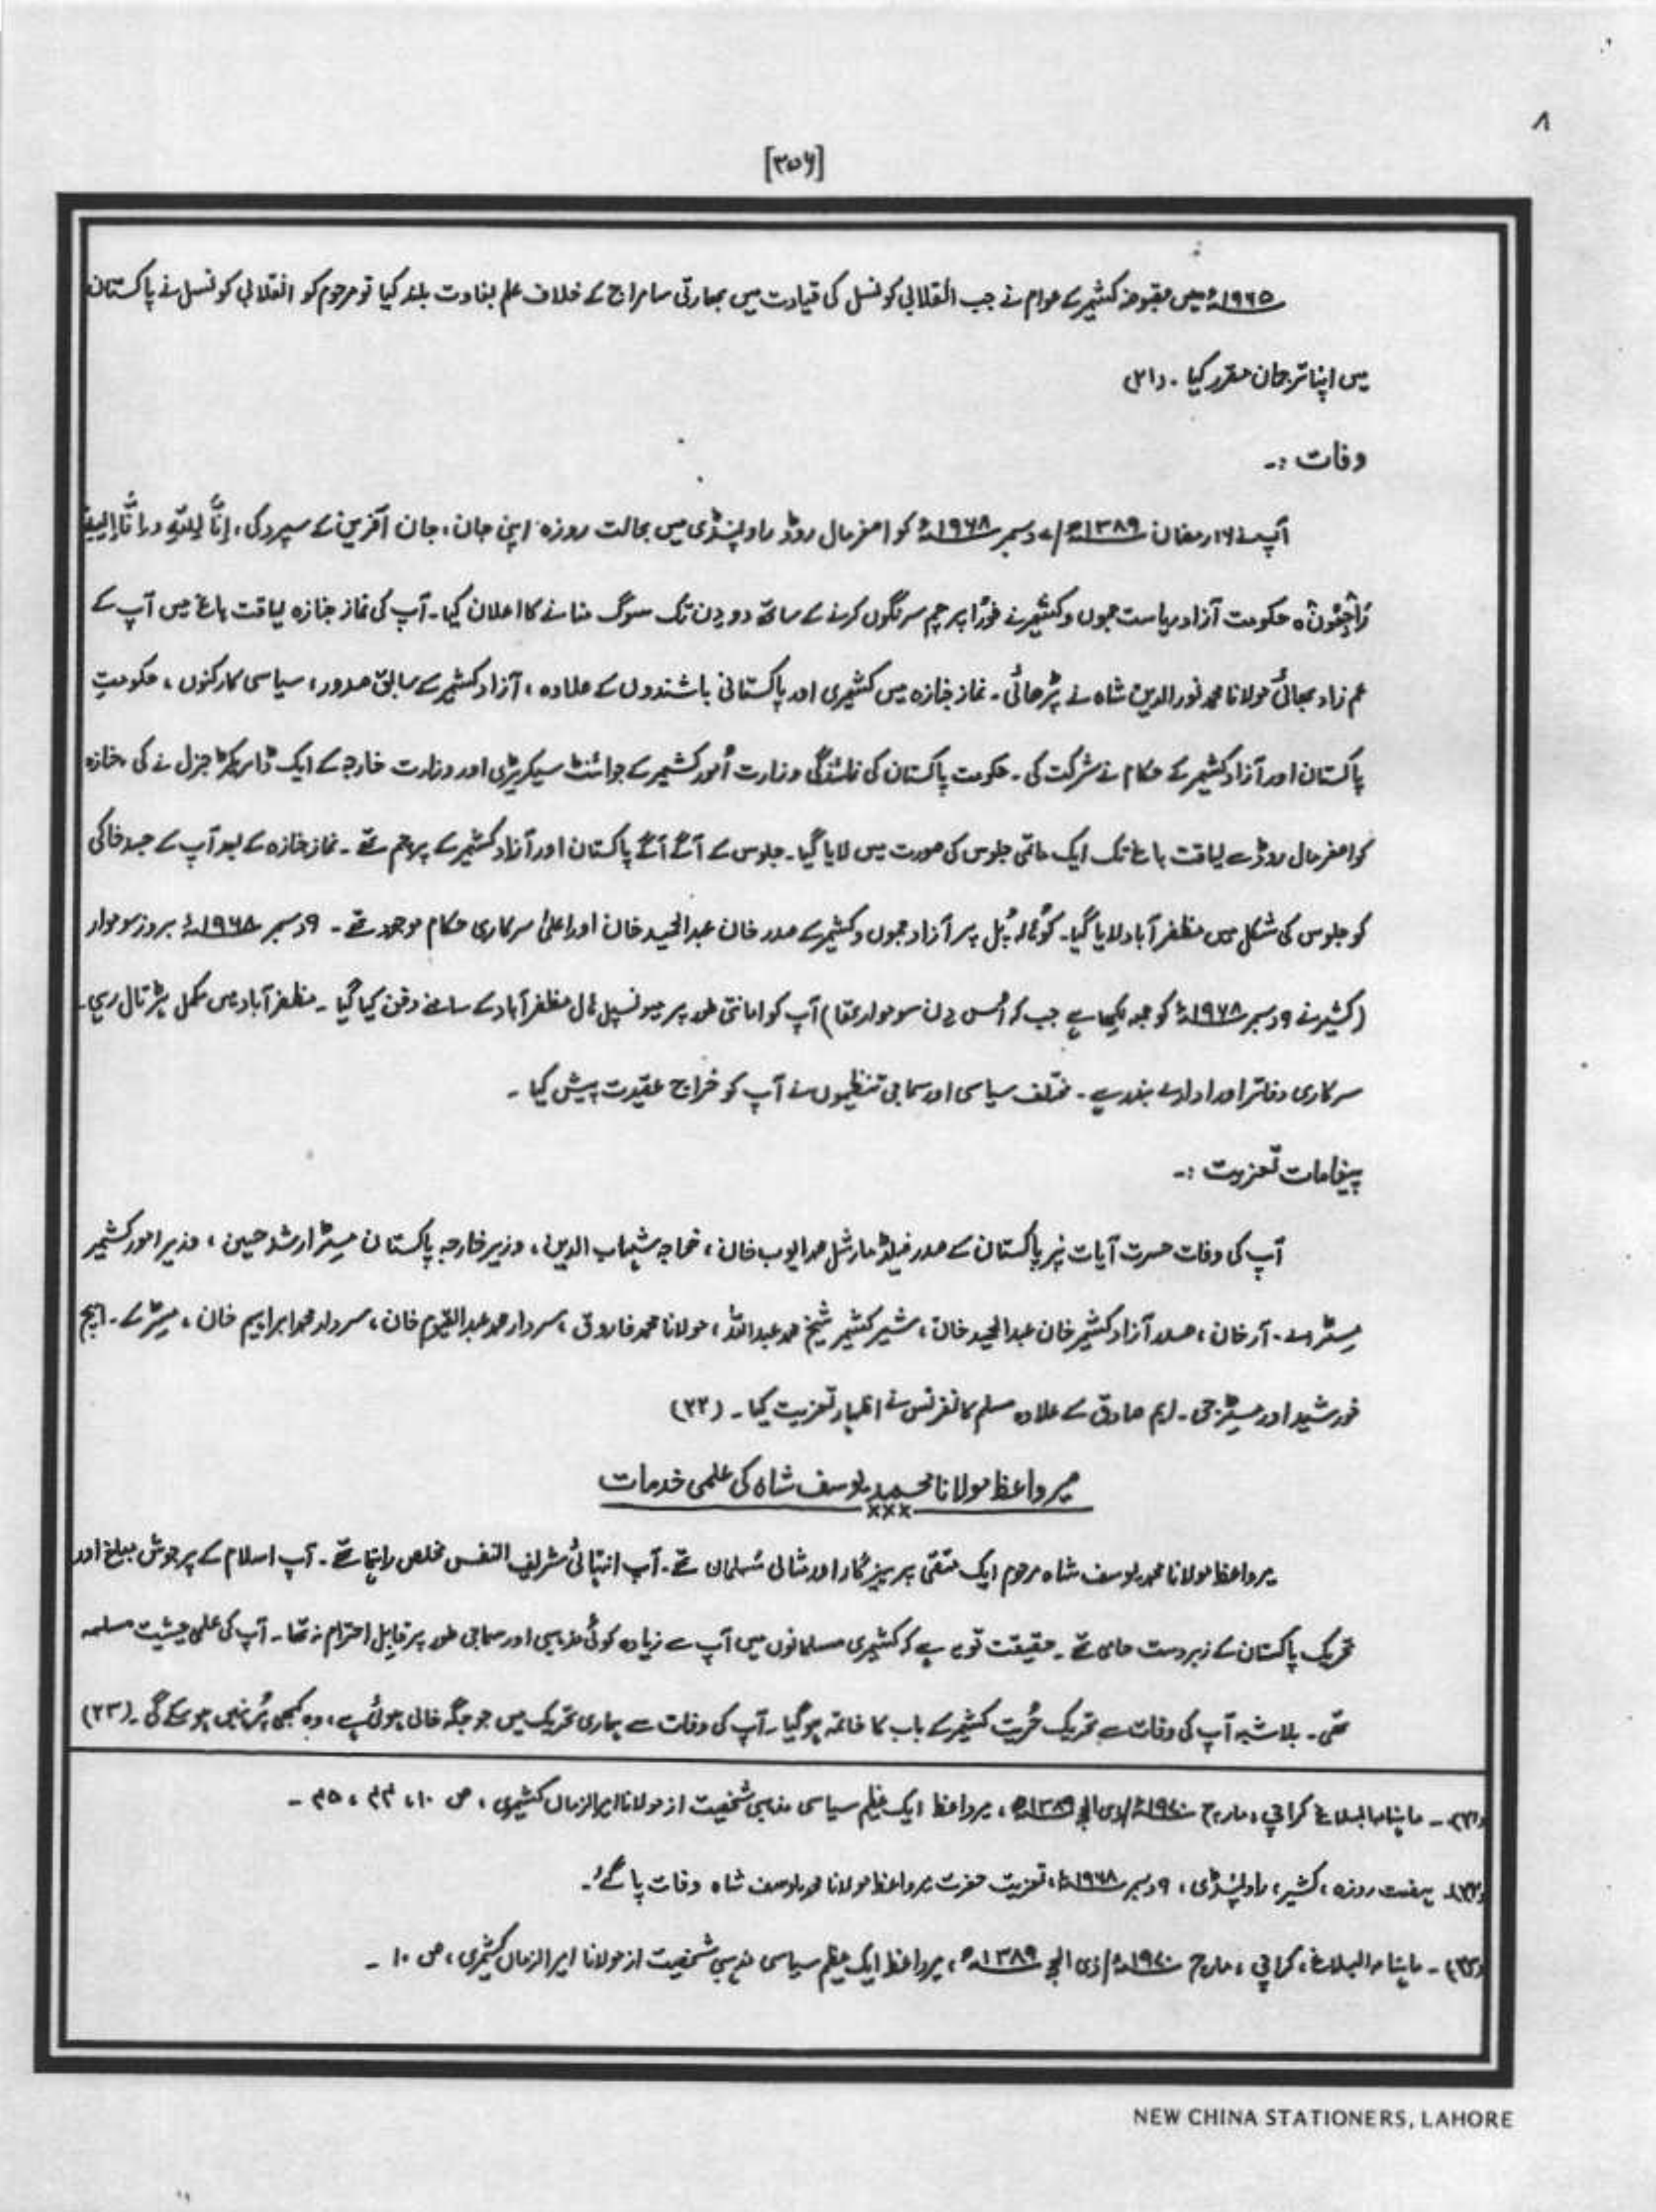 ۸
[۳۵۶]
۱۹۶۵ء میں مقبوضہ کشمیر کے عوام نے جب انقلابی کونسل کی قیادت میں بھارتی سامراج کے خلاف علم بغاوت بلند کیا تو مرحوم کو انقلابی کونسل نے پاکستان
میں اپنا ترجمان مقرر کیا ۔ (۲۱)
وفات :۔
آپ نے ۱۶ رمضان ۱۳۸۹ھ/ ۷ دسمبر ۱۹۶۸ء کو اصغر مال روڈ راولپنڈی میں بحالت روزہ اپنی جان ، جان آفرین کے سپرد کی ، اِنَّا لِلّٰہِ وَ اِنَّا اِلَیہِ
رَاجِعُونَ ہ حکومت آزاد ریاست جموں و کشمیر نے فوراً پرچم سرنگوں کرنے کے ساتھ دو دن تک سوگ منانے کا اعلان کیا ۔ آپ کی نماز جنازہ لیاقت باغ میں آپ کے
عم زاد بھائی مولانا محمد نور الدین شاہ نے پڑھائی ۔ نماز جنازہ میں کشمیری اور پاکستانی باشندوں کے علاوہ ، آزاد کشمیر کے سابق صدور ، سیاسی کارکنوں ، حکومتِ
پاکستان اور آزاد کشمیر کے حکام نے شرکت کی ۔ حکومت پاکستان کی نمائندگی وزارت اُمور کشمیر کے جوائنٹ سیکریٹری اور وزارت خارجہ کے ایک ڈائریکٹر جنرل نے کی ، جنازہ
کو اصغر مال روڈ سے لیاقت باغ تک ایک ماتمی جلوس کی صورت میں لایا گیا ۔ جلوس کے آگے آگے پاکستان اور آزاد کشمیر کے پرچم تھے ۔ نماز جنازہ کے بعد آپ کے جسد خاکی
کو جلوس کی شکل میں مظفر آباد لایا گیا ۔ کوہالہ پُل پر آزاد جموں و کشمیر کے صدر خان عبدالحمید خان اور اعلیٰ سرکاری حکام موجود تھے ۔ ۹ دسمبر ۱۹۶۸ء بروز سوموار
(کشیر نے ۹ دسمبر ۱۹۷۸ء کو جمعہ لکھا ہے جب کہ اُس دن سوموار تھا) آپ کو امانتی طور پر میونسپل ہال مظفر آباد کے سامنے دفن کیا گیا ۔ مظفر آباد میں مکمل ہڑتال رہی ۔
سرکاری دفاتر اور ادارے بند رہے ۔ مختلف سیاسی اور سماجی تنظیموں نے آپ کو خراج عقیدت پیش کیا ۔
پیغامات تعزیت :۔
آپ کی وفات حسرت آیات پر پاکستان کے صدر فیلڈ مارشل محمد ایوب خان ، خواجہ شہاب الدین ، وزیر خارجہ پاکستان مسٹر ارشد حسین ، وزیر امور کشمیر
مسٹر اے ۔ آر خان ، صدر آزاد کشمیر خان عبدالحمید خان ، شیر کشمیر شیخ محمد عبداللہ ، مولانا محمد فاروق ، سردار محمد عبدالقیوم خان ، سردار محمد ابراہیم خان ، مسٹر کے ۔ ایچ
خورشید اور مسٹر جی ۔ ایم صادق کے علاوہ مسلم کانفرنس نے اظہار تعزیت کیا ۔ (۲۲)
میر واعظ مولانا محمد یوسف شاہ کی علمی خدمات
×××
میر واعظ مولانا محمد یوسف شاہ مرحوم ایک متقی پرہیزگار اور مثالی مُسلمان تھے ۔ آپ انتہائی شریف النفس مخلص راہنما تھے ۔ آپ اسلام کے پرجوش مبلغ اور
تحریک پاکستان کے زبردست حامی تھے ۔ حقیقت تو یہ ہے کہ کشمیری مسلمانوں میں آپ سے زیادہ کوئی مذہبی اور سماجی طور پر قابل احترام نہ تھا ۔ آپ کی علمی حیثیت مسلمہ
تھی ۔ بلاشبہ آپ کی وفات سے تحریک حُریت کشمیر کے باب کا خاتمہ ہو گیا ۔ آپ کی وفات سے ہماری تحریک میں جو جگہ خالی ہوئی ہے ، وہ کبھی پُر نہیں ہو سکے گی ۔ (۲۳)
(۲۱) ۔ ماہنامہ البلاغ کراچی ، مارچ ۱۹۷۰ء/ذی الحج ۱۳۸۹ھ ، میر واعظ ایک عظیم سیاسی مذہبی شخصیت از مولانا امیر الزمان کشمیری ، ص ۱۰ ،
(۲۲) ۔ ہفت روزہ ، کشیر ، راولپنڈی ، ۹ دسمبر ۱۹۶۸ء ، تعزیت حضرت میر واعظ مولانا محمد یوسف شاہ وفات پا گئے ۔
(۲۳) ۔ ماہنامہ البلاغ ، کراچی ، مارچ ۱۹۷۰ء/ذی الحج ۱۳۸۹ھ ، میر واعظ ایک عظیم سیاسی مذہبی شخصیت از مولانا امیر الزمان کشمیری ، ص ۱۰ ۔
NEW CHINA STATIONERS, LAHORE